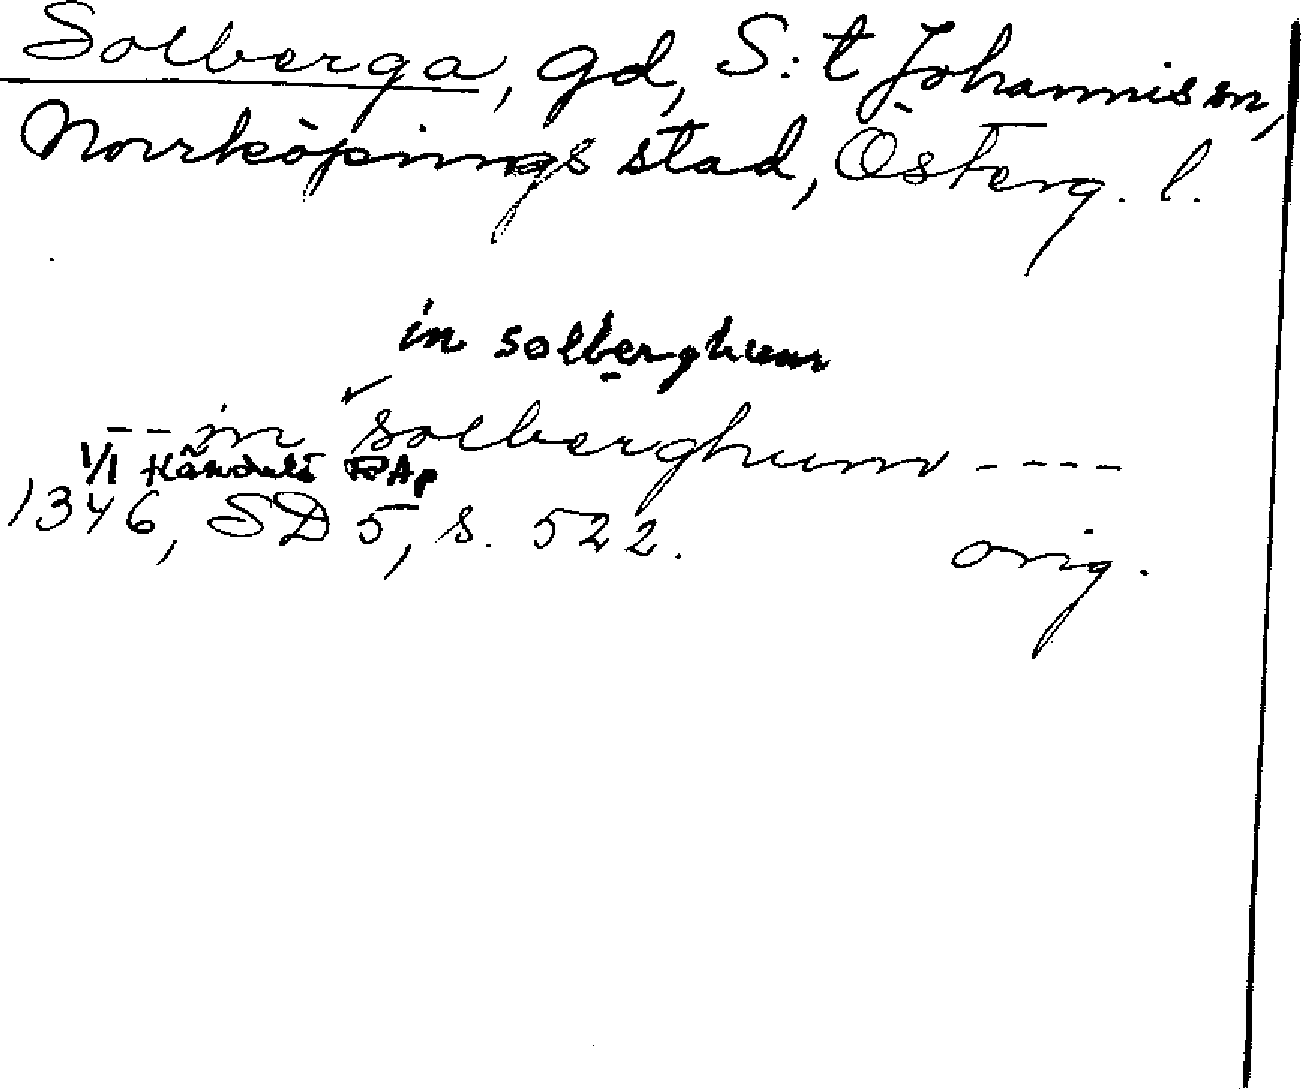 Solberga, gd, S:t Johannis sn,
Norrköpings stad, Österg. l.
in solberghum
-- in solberghum ----
1/1 Händelö RAp
1346, SD 5, s. 522. orig.